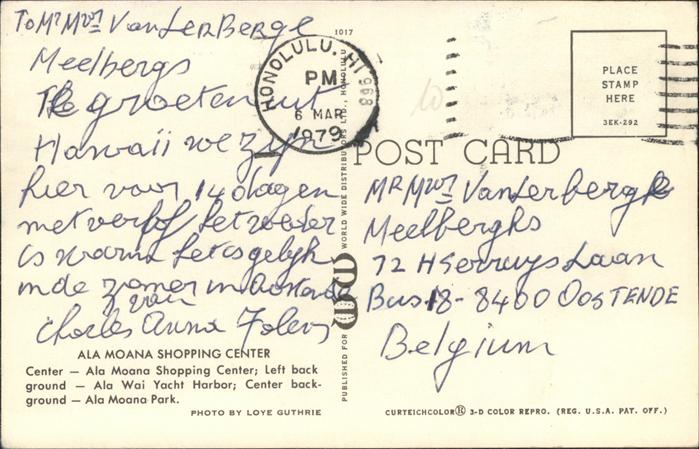 To Mr Mvr VanderBerge
Meelbergs
De groeten uit
Hawaii we zijn
hier voor 14 dagen
met verlof het weder
is warm het is gelijk
in de zomer in Oostende
van
Charles Anna
ALA MOANA SHOPPING CENTER
Center — Ala Moana Shopping Center; Left back
ground — Ala Wai Yacht Harbor; Center back-
ground — Ala Moana Park.
PHOTO BY LOYE GUTHRIE
1017
PUBLISHED FOR WORLD WIDE DISTRIBUTORS LTD., HONOLULU
HONOLULU, HI
968
PM
6 MAR
1979
PLACE
STAMP
HERE
3EK-292
POST CARD
Mr Mvr Vanderberghe
Meelberghs
72 H Serruys Laan
Bus 18 - 8400 OOSTENDE
Belgium
CURTEICHCOLOR® 3-D COLOR REPRO. (REG. U.S.A. PAT. OFF.)